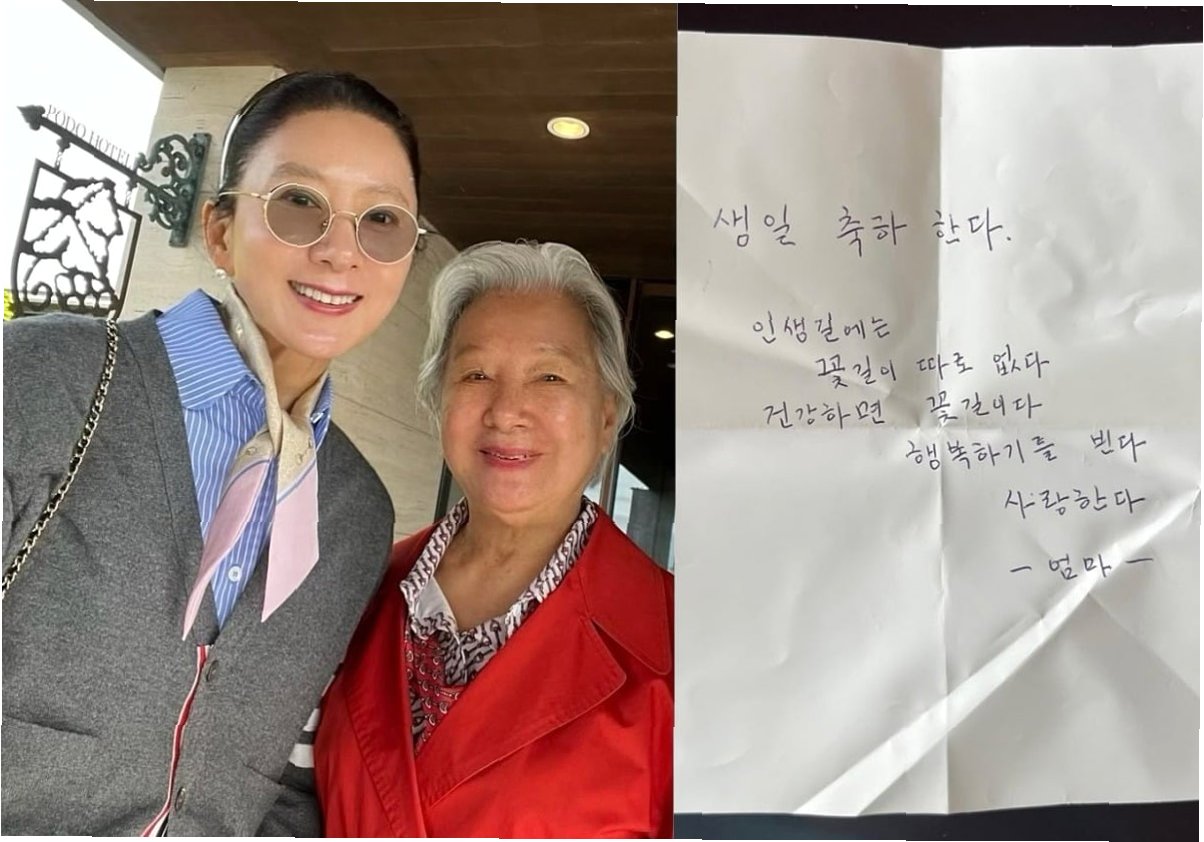 PODO HOTEL
생일 축하 한다.
인생길에는
꽃길이 따로 없다
건강하면 꽃길이다
행복하기를 빈다
사랑한다
- 엄마 -